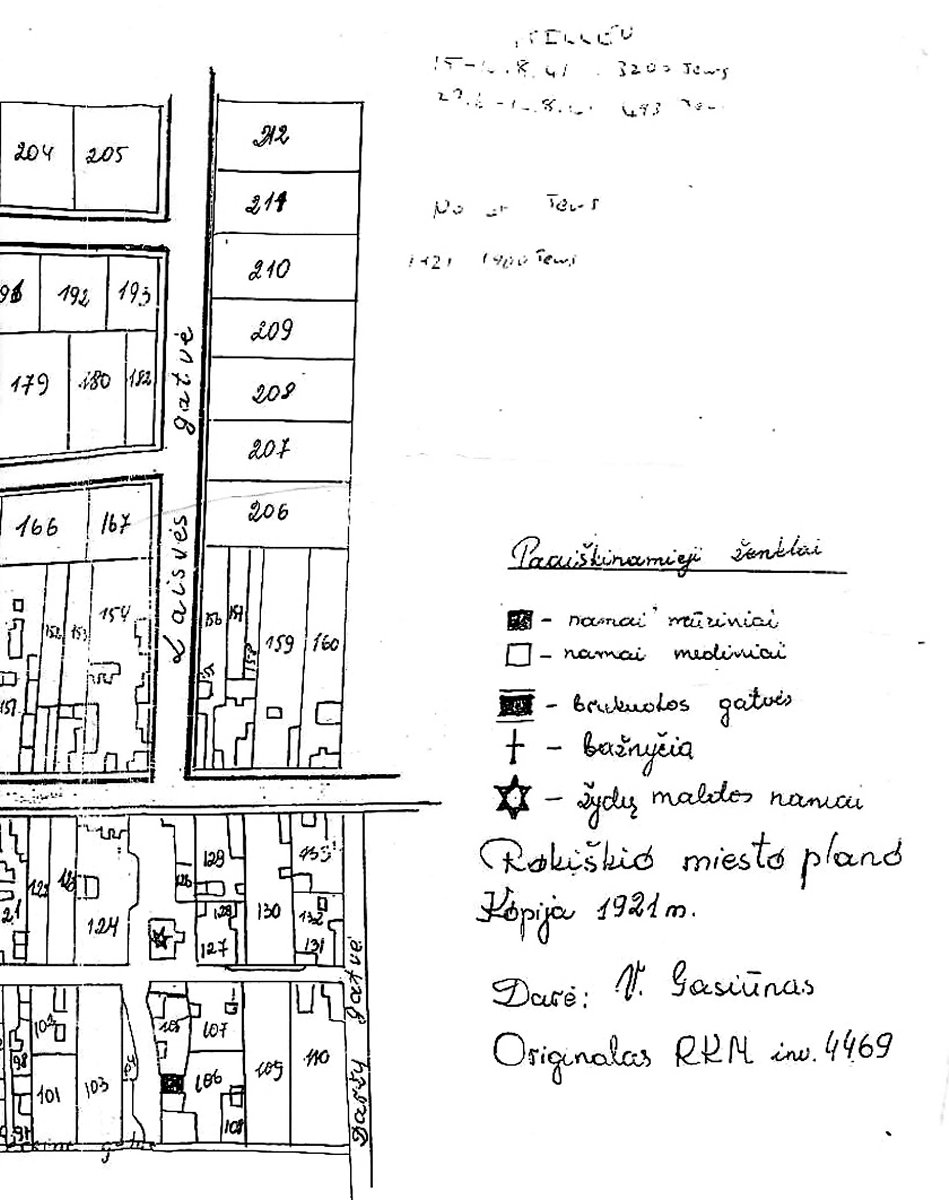 15-16.8.41 3200 Jews
493
No Jews
1921 1400 Jews
204 205
212
211
210
192 193
209
179 180 182
208
207
166 167
206
Laisvės gatvė
Paaiškinamieji ženklai
- namai mūriniai
- namai mediniai
- brukuotos gatvės
- bažnyčia
- žydų maldos namai
Rokiškio miesto plano
Kopija 1921 m.
Darė: V. Gasiūnas
Originalas RKM inv. 4469
152 153 154
156 157 158 159 160
151
124
126 128 129 130 133
127 132 131
Daržų gatvė
102 107
98 101 103 106 109 110
108